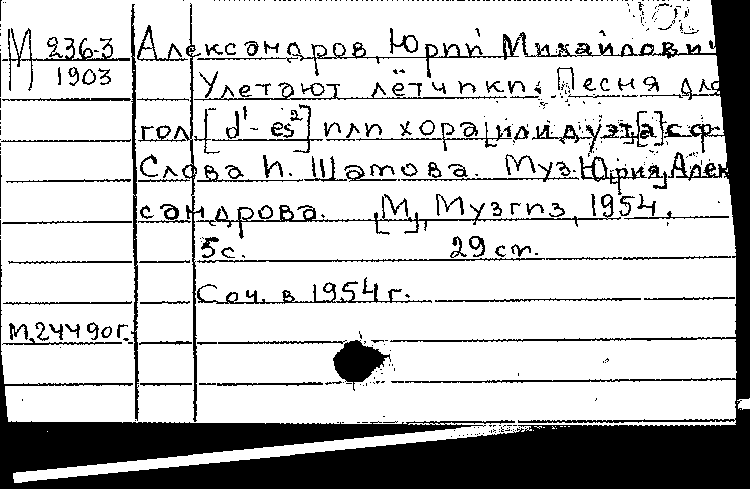 М 236-3 Александров, Юрий Михайлович
1903 Улетают лётчики. Песня для
гол. [d¹- es²] или хора [или дуэт[а] с ф-
Слова И. Шатова. Муз. Юрия Алек
сандрова. [М], Музгиз, 1954.
5с. 29 см.
Соч. в 1954 г.
М.24490г.